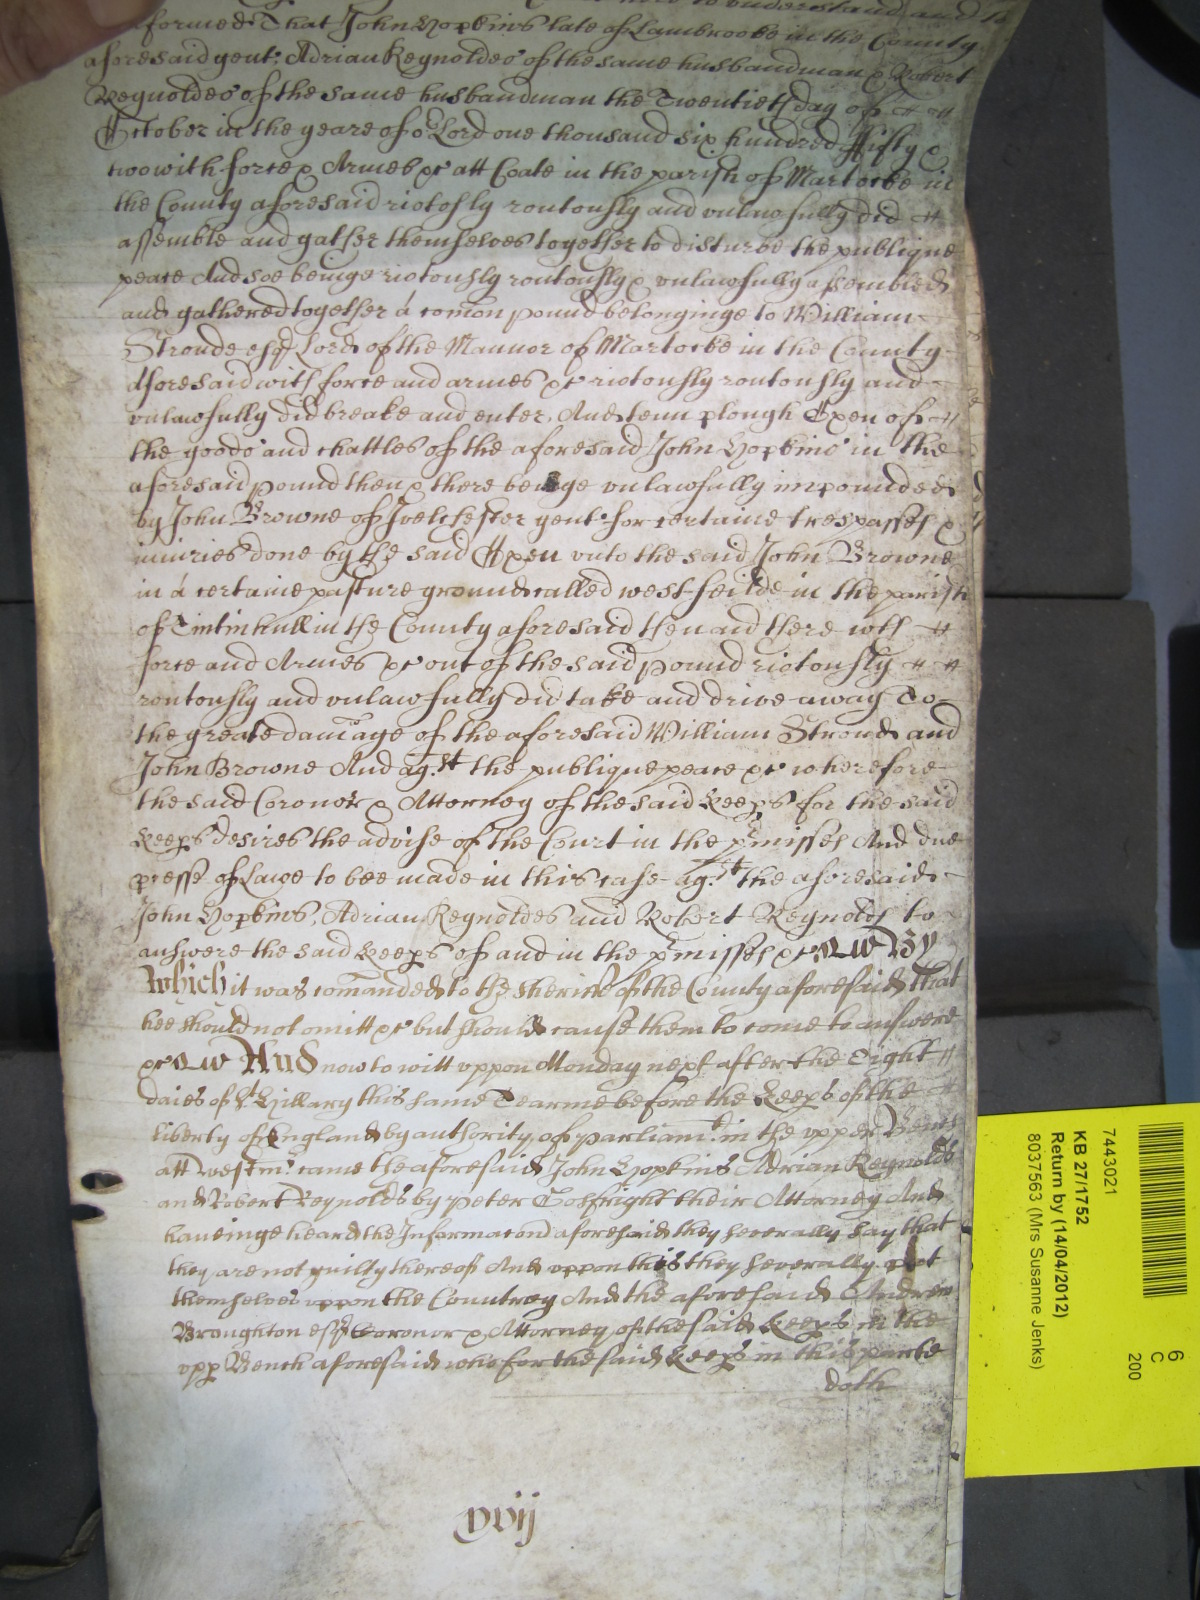 to understand and to
informed That John Hopkins late of Lambrooke in the County
aforesaid gent. Adrian Reynoldes of the same husbandman & Robert
Reynoldes of the same husbandman the Twentieth day of
October in the yeare of or Lord one thousand six hundred ffifty &
twoo with force & Armes &c att Coate in the parish of Martocke in
the County aforesaid riotosly routously and vnlawfully did
assemble and gather themselves together to disturbe the publique
peace And soe beinge riotously routously & vnlawfully assembled
and gathered together a comon pound belonginge to William
Stroude esqr Lord of the Mannor of Martocke in the County
aforesaid with force and armes &c riotously routously and
vnlawfully did breake and enter, And tenn plough Oxen of
the goods and chattles of the aforesaid John Hopkins in the
aforesaid pound then & there beinge vnlawfully impounded
by John Browne of Ivelchester gent. for certaine trespasses &
iniuries done by the said Oxen vnto the said John Browne
in a certaine pasture ground called west feilde in the parish
of Tintinhull in the County aforesaid then and there wth
force and Armes &c out of the said pound riotously
routously and vnlawfully did take and drive away To
the greate damage of the aforesaid William Stroud and
John Browne And agst the publique peace &c wherefore
the said Coronor & Attorney of the said Keeps for the said
Keeps desires the advise of the Court in the pmisses And due
pcesse of Lawe to bee made in this case agst the aforesaid
John Hopkins, Adrian Reynoldes and Robert Reynolds to
answere the said Keeps of and in the pmisses &c By
Which it was comanded to the sheriff of the County aforesaid that
hee should not omitt &c but should cause them to come to answere
&c And now to witt vppon Monday next after the Eight
daies of St Hillary this same Tearme before the Keeps of the
liberty of England by authority of parliamt in the vpper Bench
att westmr came the aforesaid John Hopkins Adrian Reynolds
and Robert Reynolds by Peter their Attorney And
haueinge heard the Informacon aforesaid they severally say that
they are not guilty thereof And vppon this they severally put
themselves vppon the Countrey And the aforesaid Andrew
Broughton esqr Coronor & Attorney of the said Keeps in the
vpp Bench aforesaid who for the said Keeps in this parte
doth
xvij
6
C
200
7443021
KB 27/1752
Return by (14/04/2012)
8037563 (Mrs Susanne Jenks)